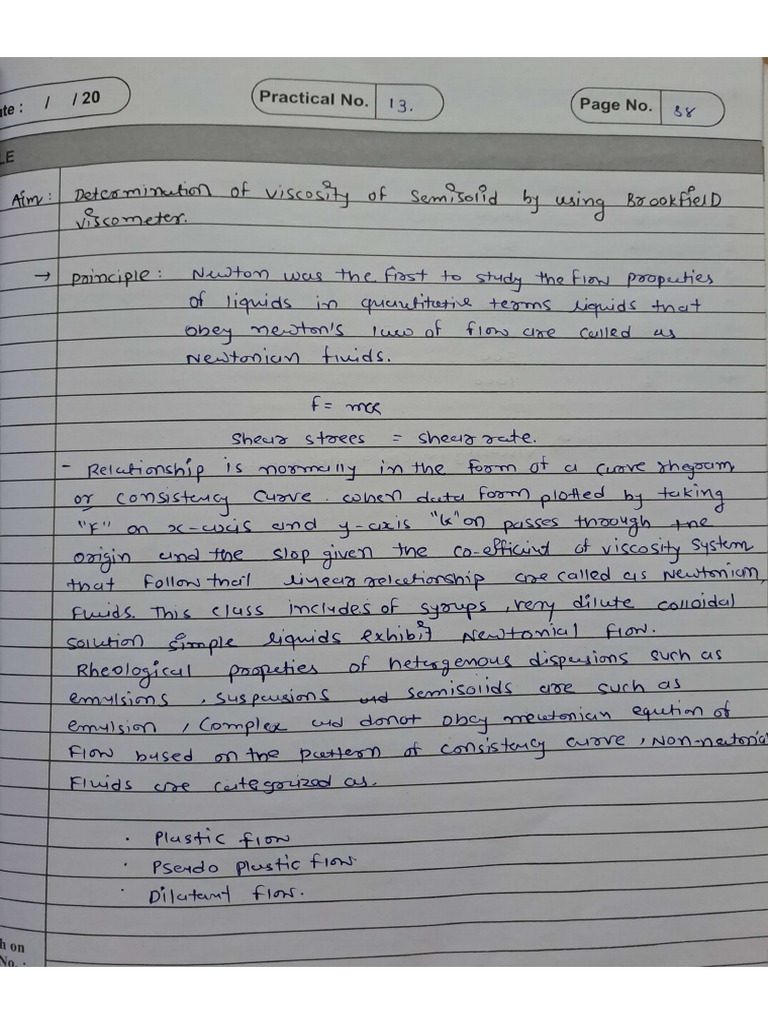 ate : / / 20 Practical No. 13. Page No. 38
LE
Aim: Determination of viscosity of semisolid by using BrookfielD
viscometer.
→ Principle: Newton was the first to study the flow propeties
of liquids in quantitative terms liquids that
obey newton's law of flow are called as
Newtonian fluids.
f =
Shear strees = shear rate.
- Relationship is normally in the form of a curve rhegram
or consistency curve. when data form plotted by taking
"F" on x-axis and y-axis "G" on passes through the
origin and the slop given the co-efficint of viscosity system
that follow that linyear relationship are called as Newtonian
Fluids. This class includes of syrups, very dilute colloidal
solution simple liquids exhibit Newtonial flow.
Rheological propeties of hetergenous dispersions such as
emulsions, suspensions and semisolids are such as
emulsion, complex and donot obey newtonian eqution of
flow based on the pattern of consistency curve, Non-neutonia
Fluids are categorized as.
· Plastic flow
· Pseudo plastic flow.
· Dilatant flow.
h on
No. :